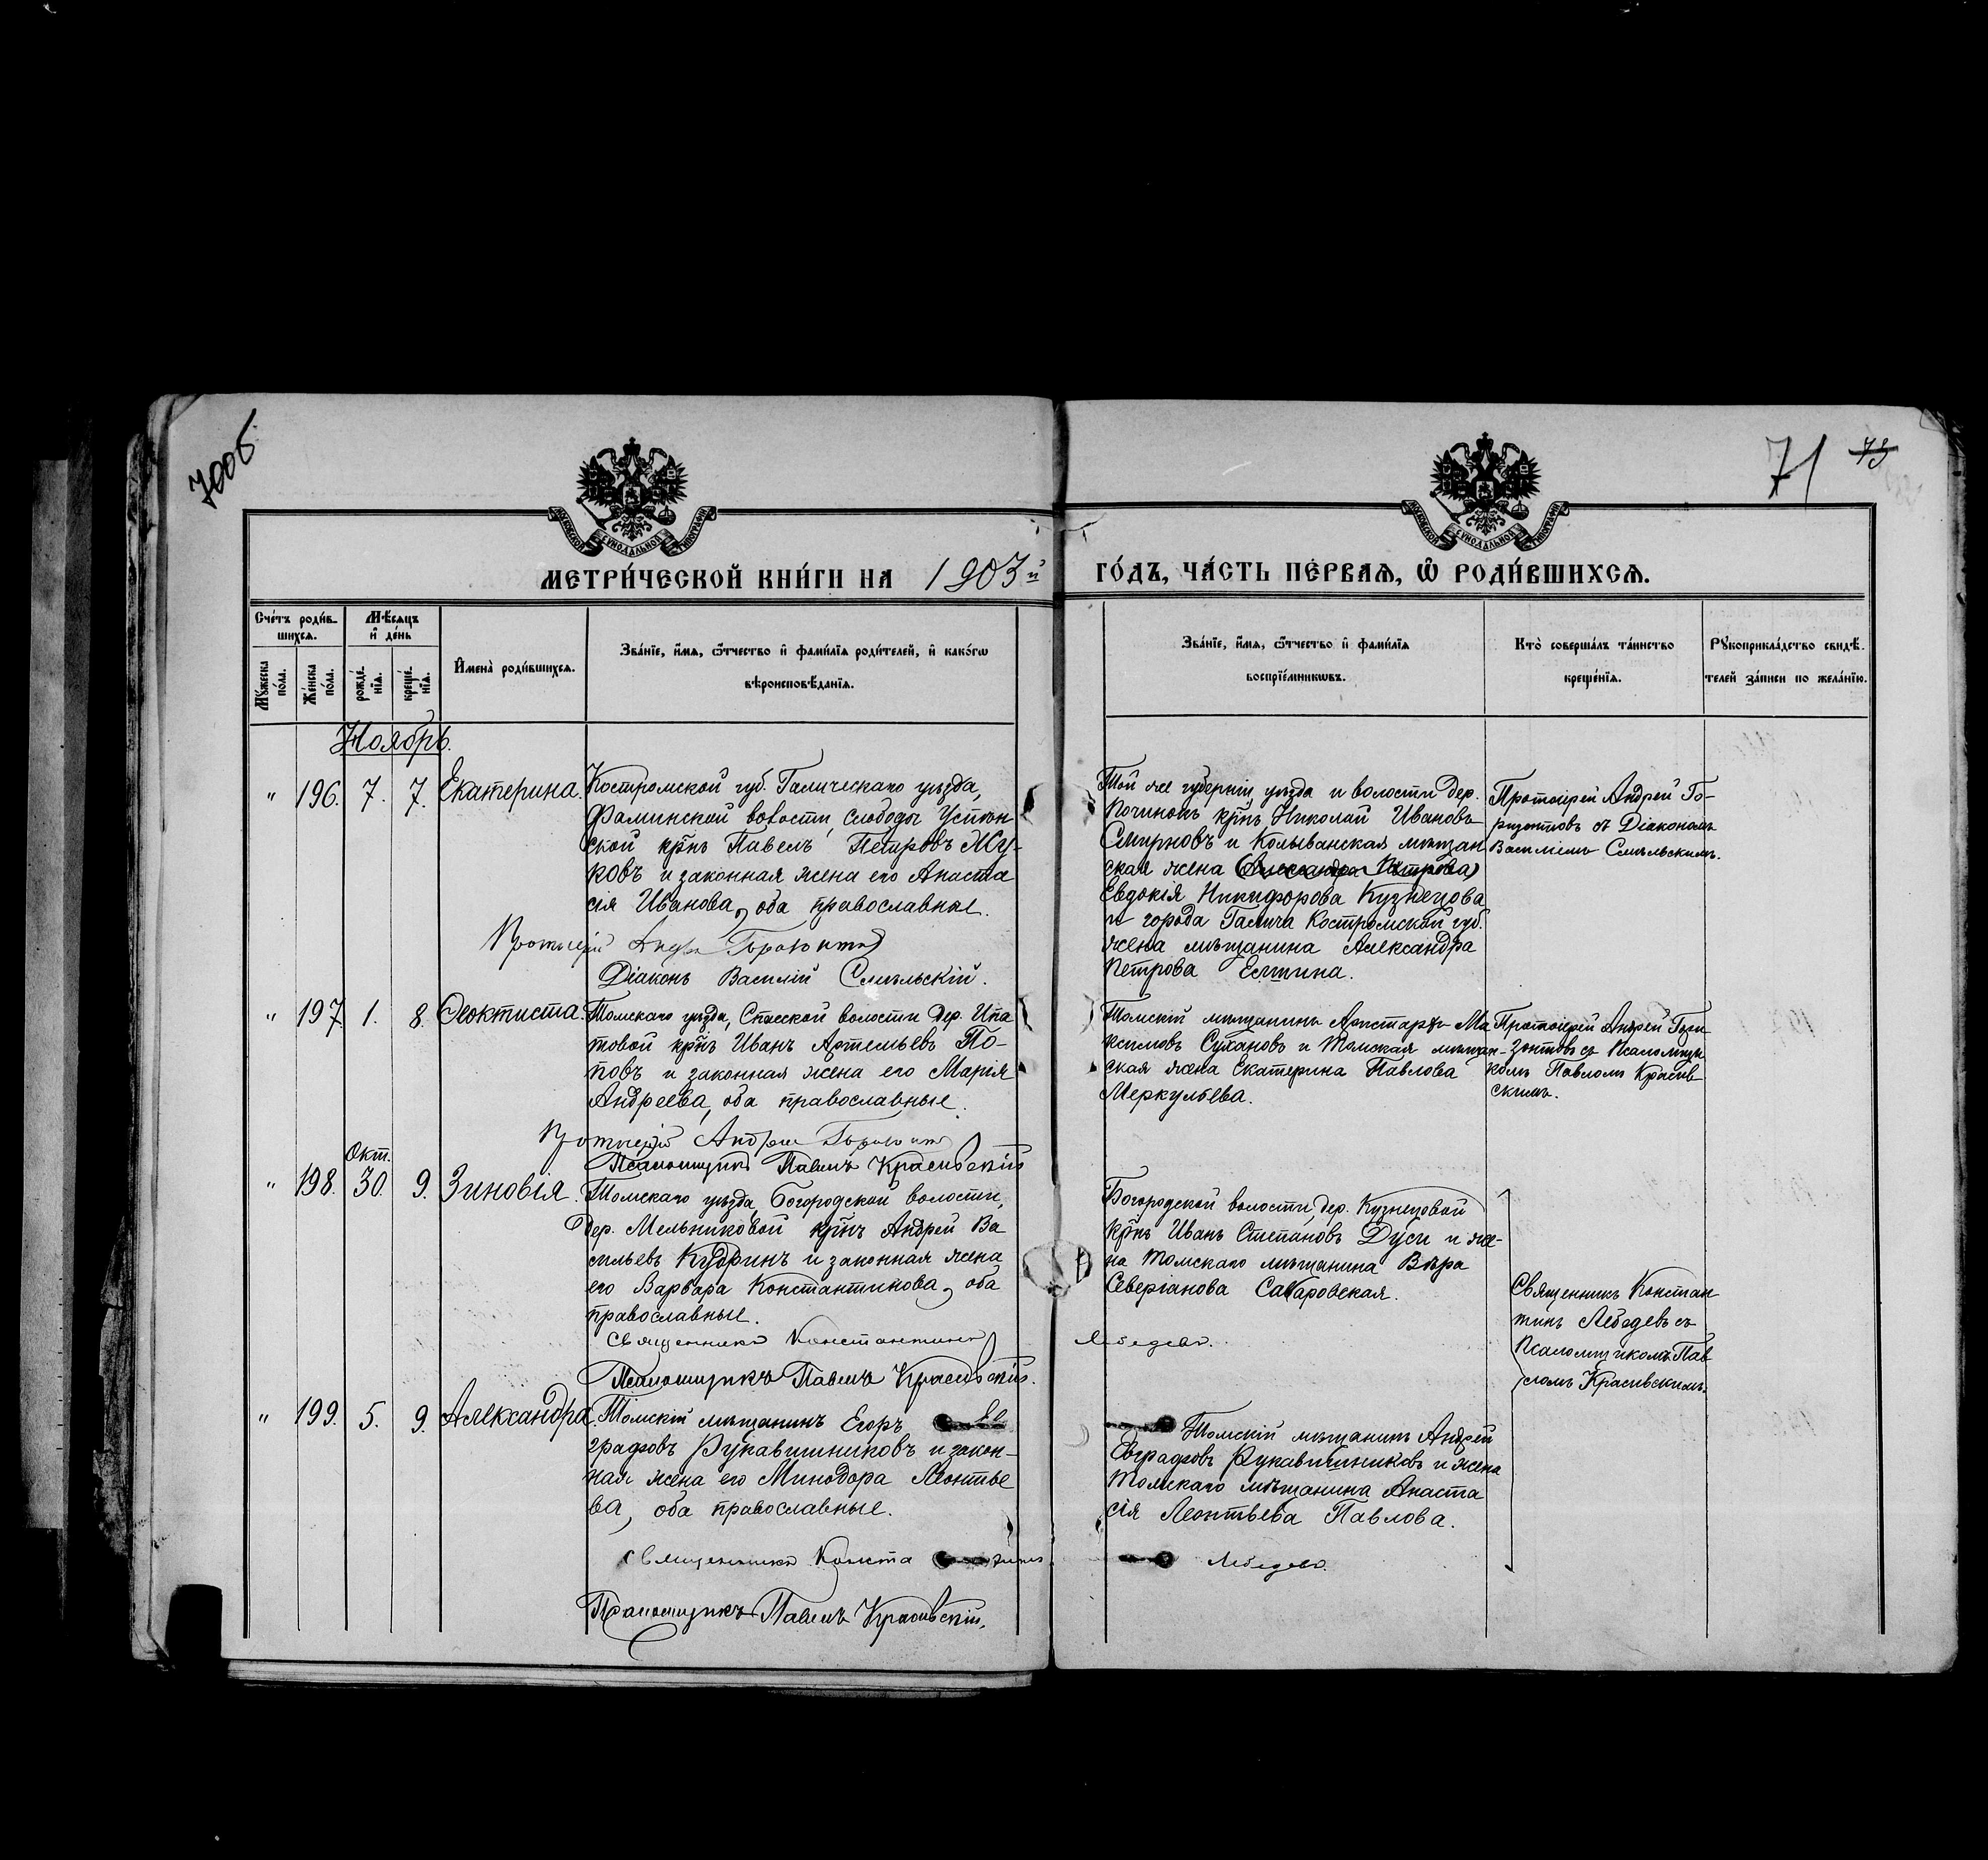 70об
71 73
МЕТРИ́ЧЕСКОЙ КНИ́ГИ НА 1903й ГО́ДЪ, ЧА́СТЬ ПЕ́РВАЯ, Ѿ РОДИ́ВШИХСЯ.
Сче́тъ роди́в-
шихся.
Мѣ́сяцъ
и҆ де́нь
Му́жеска по́ла.
Же́нска по́ла.
рожде́-
нїя.
креще́-
нїя.
И҆мена̀ роди́вшихся.
Зва́нїе, и҆́мя, ѻ҆́тчество и҆ фами́лїя роди́телей, и҆ како́гѡ
вѣроисповѣ́данїя.
Зва́нїе, и҆́мя, ѻ҆́тчество и҆ фами́лїя
воспрїе́мникѡвъ.
Кто̀ соверша́лъ та́инство
креще́нїя.
Рꙋкоприкла́дство свидѣ́-
телей за́писи по жела́нїю.
Ноябрь.
" 196. 7. 7. Екатерина.
Костромской губ. Галическаго уѣзда,
Фоминской волости, слободы Успен
ской кр̃нъ Павелъ Петровъ Жу-
ковъ и законная жена его Анаста
сія Иванова, оба православные.
Протоіерей Андрей Горизонтов
Діаконъ Василій Смѣльскій.
Той же губерніи, уѣзда и волости дер.
Починокъ кр̃нъ Николай Ивановъ
Смирновъ и Колыванская мѣщан
ская жена (Александра Петрова)
Евдокія Никифорова Кузнецова
и города Галича Костромской губ.
жена мѣщанина Александра
Петрова
Протоіерей Андрей Го-
ризонтовъ съ Діакономъ
Василіемъ Смѣльскимъ.
" 197 1. 8. Ѳеоктиста.
Томскаго уѣзда, Спасской волости дер. Ипа
товой кр̃нъ Иванъ Артемьевъ По-
повъ и законная жена его Марія
Андреева, оба православные.
Протоіерей Андрей Горизонтов
Псаломщикъ Павелъ Красивскій
Томскій мѣщанинъ Аристархъ Ма
ксимовъ Сухановъ и Томская мѣщан-
ская жена Екатерина Павлова
Меркульева.
Протоіерей Андрей Гори
зонтовъ съ Псаломщи
комъ Павломъ Красив
скимъ.
Окт.
" 198. 30. 9. Зиновія.
Томскаго уѣзда, Богородской волости,
дер. Мельниковой кр̃нъ Андрей Ва
сильевъ Кудринъ и законная жена
его Варвара Константинова, оба
православные.
Священникъ Константинъ Лебедевъ.
Псаломщикъ Павелъ Красивскій.
Богородской волости, дер. Кузнецовой
кр̃нъ Иванъ Степановъ Дуси и же-
на Томскаго мѣщанина Вѣра
Северіанова
Священникъ Констан
тинъ Лебедевъ съ
Псаломщикомъ Пав
ломъ Красивскимъ.
" 199. 5. 9. Александра.
Томскій мѣщанинъ Егоръ Ев
графовъ Рукавишниковъ и закон-
ная жена его Минодора Леонтье
ва, оба православные.
Священникъ Константинъ Лебедевъ.
Псаломщикъ Павелъ Красивскій.
Томскій мѣщанинъ Андрей
Евграфовъ Рукавишниковъ и жена
Томскаго мѣщанина Анаста
сія Леонтьева Павлова.